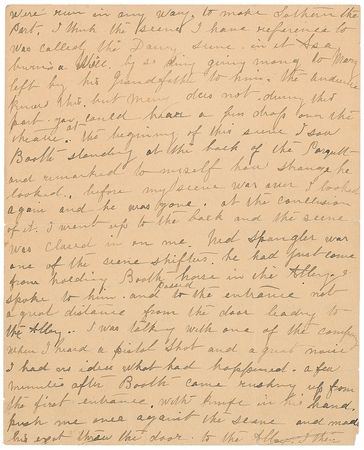 were run in any way. to make Sothern the
Part. I think the scene I have reference to
was called, the Dairy Scene. in it Asa
burns a Will, by so doing giving money to Mary
left by his Grandfather to him. The audience
knew this. but Mary does not. during this
part. you could hear a pin drop over the
theatre. at the beginning of this scene I saw
Booth standing at the back of the Parquett
and remarked to myself how strange he
looked. before my scene was over I looked
again and he was gone. at the conclusion
of it. I went up to the back and the scene
was closed in on me. Ned Spangler was
one of the scene shifters. he had just come
from holding Booth horse in the Alley. I
spoke to him. and passed to the entrance not
a great distance from the door leading to
the Alley. I was talking with one of the company
when I heard a pistol shot and a great noise
I had no idea what had happened. a few
minutes after Booth came rushing up from
the first entrance. with knife in his hand.
push me once against the scene and made
his exit threw the door. to the Alley. I then